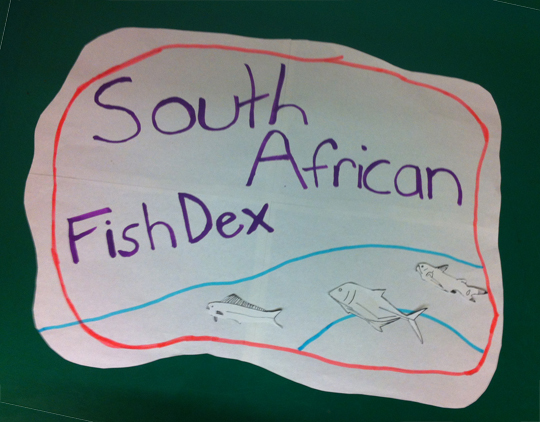 South
African
FishDex